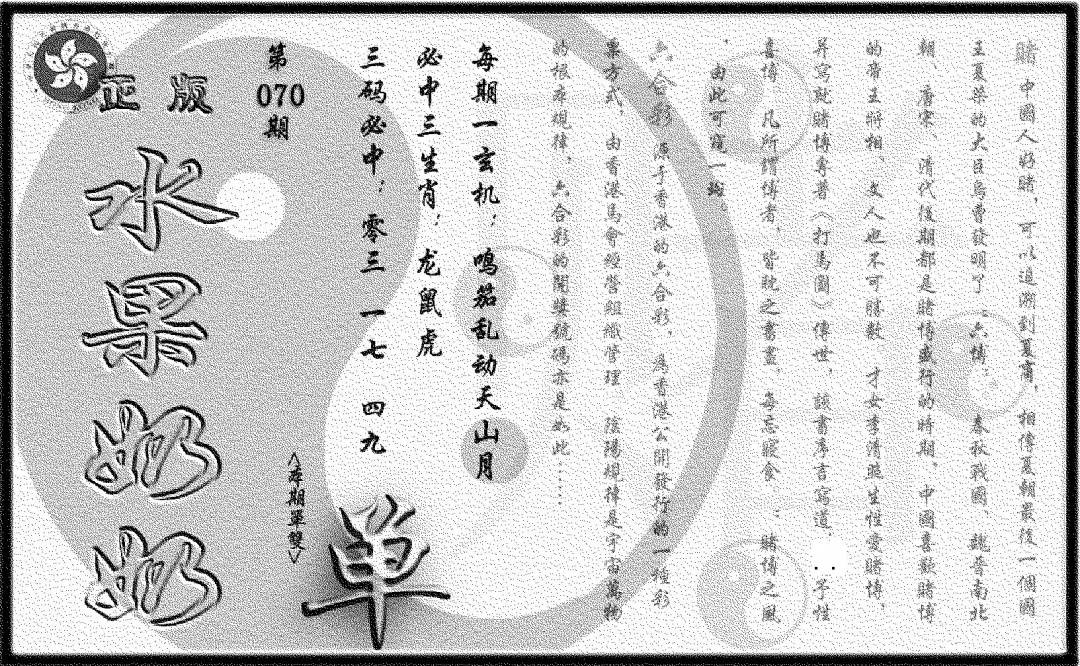 賭 中國人好賭，可以追溯到夏甯，相傳夏朝最後一個國
王夏桀的大臣烏曹發明了“六博”。春秋戰國、魏晉南北
朝、唐宋、清代後期都是賭博盛行的時期、中國喜歡賭博
的帝王將相、文人也不可勝數 才女李清照生性愛賭博，
并寫就賭博專著《打馬圖》傳世，該書序言寫道：予性
喜博，凡所謂博者，皆耽之晝晝，每忘寢食 ；賭博之風
，由此可窺一斑。
六合彩 源于香港的六合彩，爲香港公開發行的一種彩
票方式，由香港馬會經營組織管理 陰陽規律是宇宙萬物
的根本規律，六合彩的開獎號碼亦是如此……
每期一玄机：鸣笳乱动天山月
必中三生肖：龙鼠虎
三码必中：零三 一七 四九
第
070
期
<本期單雙>
单
正版
水果奶奶